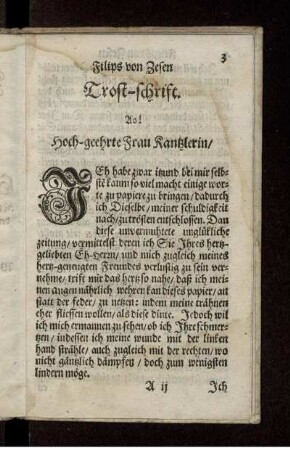 3
Filips von Zesen
Trost-schrift.
Hoch-geehrte Frau Kantzlerin/
ICh habe zwar itzund bei mir selb-
sté kaum so viel macht einige wor-
te zu papiere zu bringen/ dadurch
ich Dieselbe/ meiner schuldigkeit
nach/ zu trösten entschlossen. Dan
diese unvermuhtete unglükliche
zeitung/ vermittelst deren ich Sie Ihres hertz-
geliebten Eh-herrn/ und mich zugleich meines
hertz-geneugten Freundes verlustig zu sein ver-
nehme/ trift mir das hertz so nahe/ daß ich mei-
nen augen nährlich wehren kan dieses papier/ an
statt der feder/ zu netzen: indem meine trähnen
eher fliessen wollen/ als diese dinte. Jedoch wil
ich mich ermannen zu sehen/ ob ich Ihre schmer-
tzen/ indessen ich meine wunde mit der linken
hand strähle/ auch zugleich mit der rechten/ wo
nicht gäntzlich dämpfen/ doch zum wenigsten
lindern möge.
A ij Ich